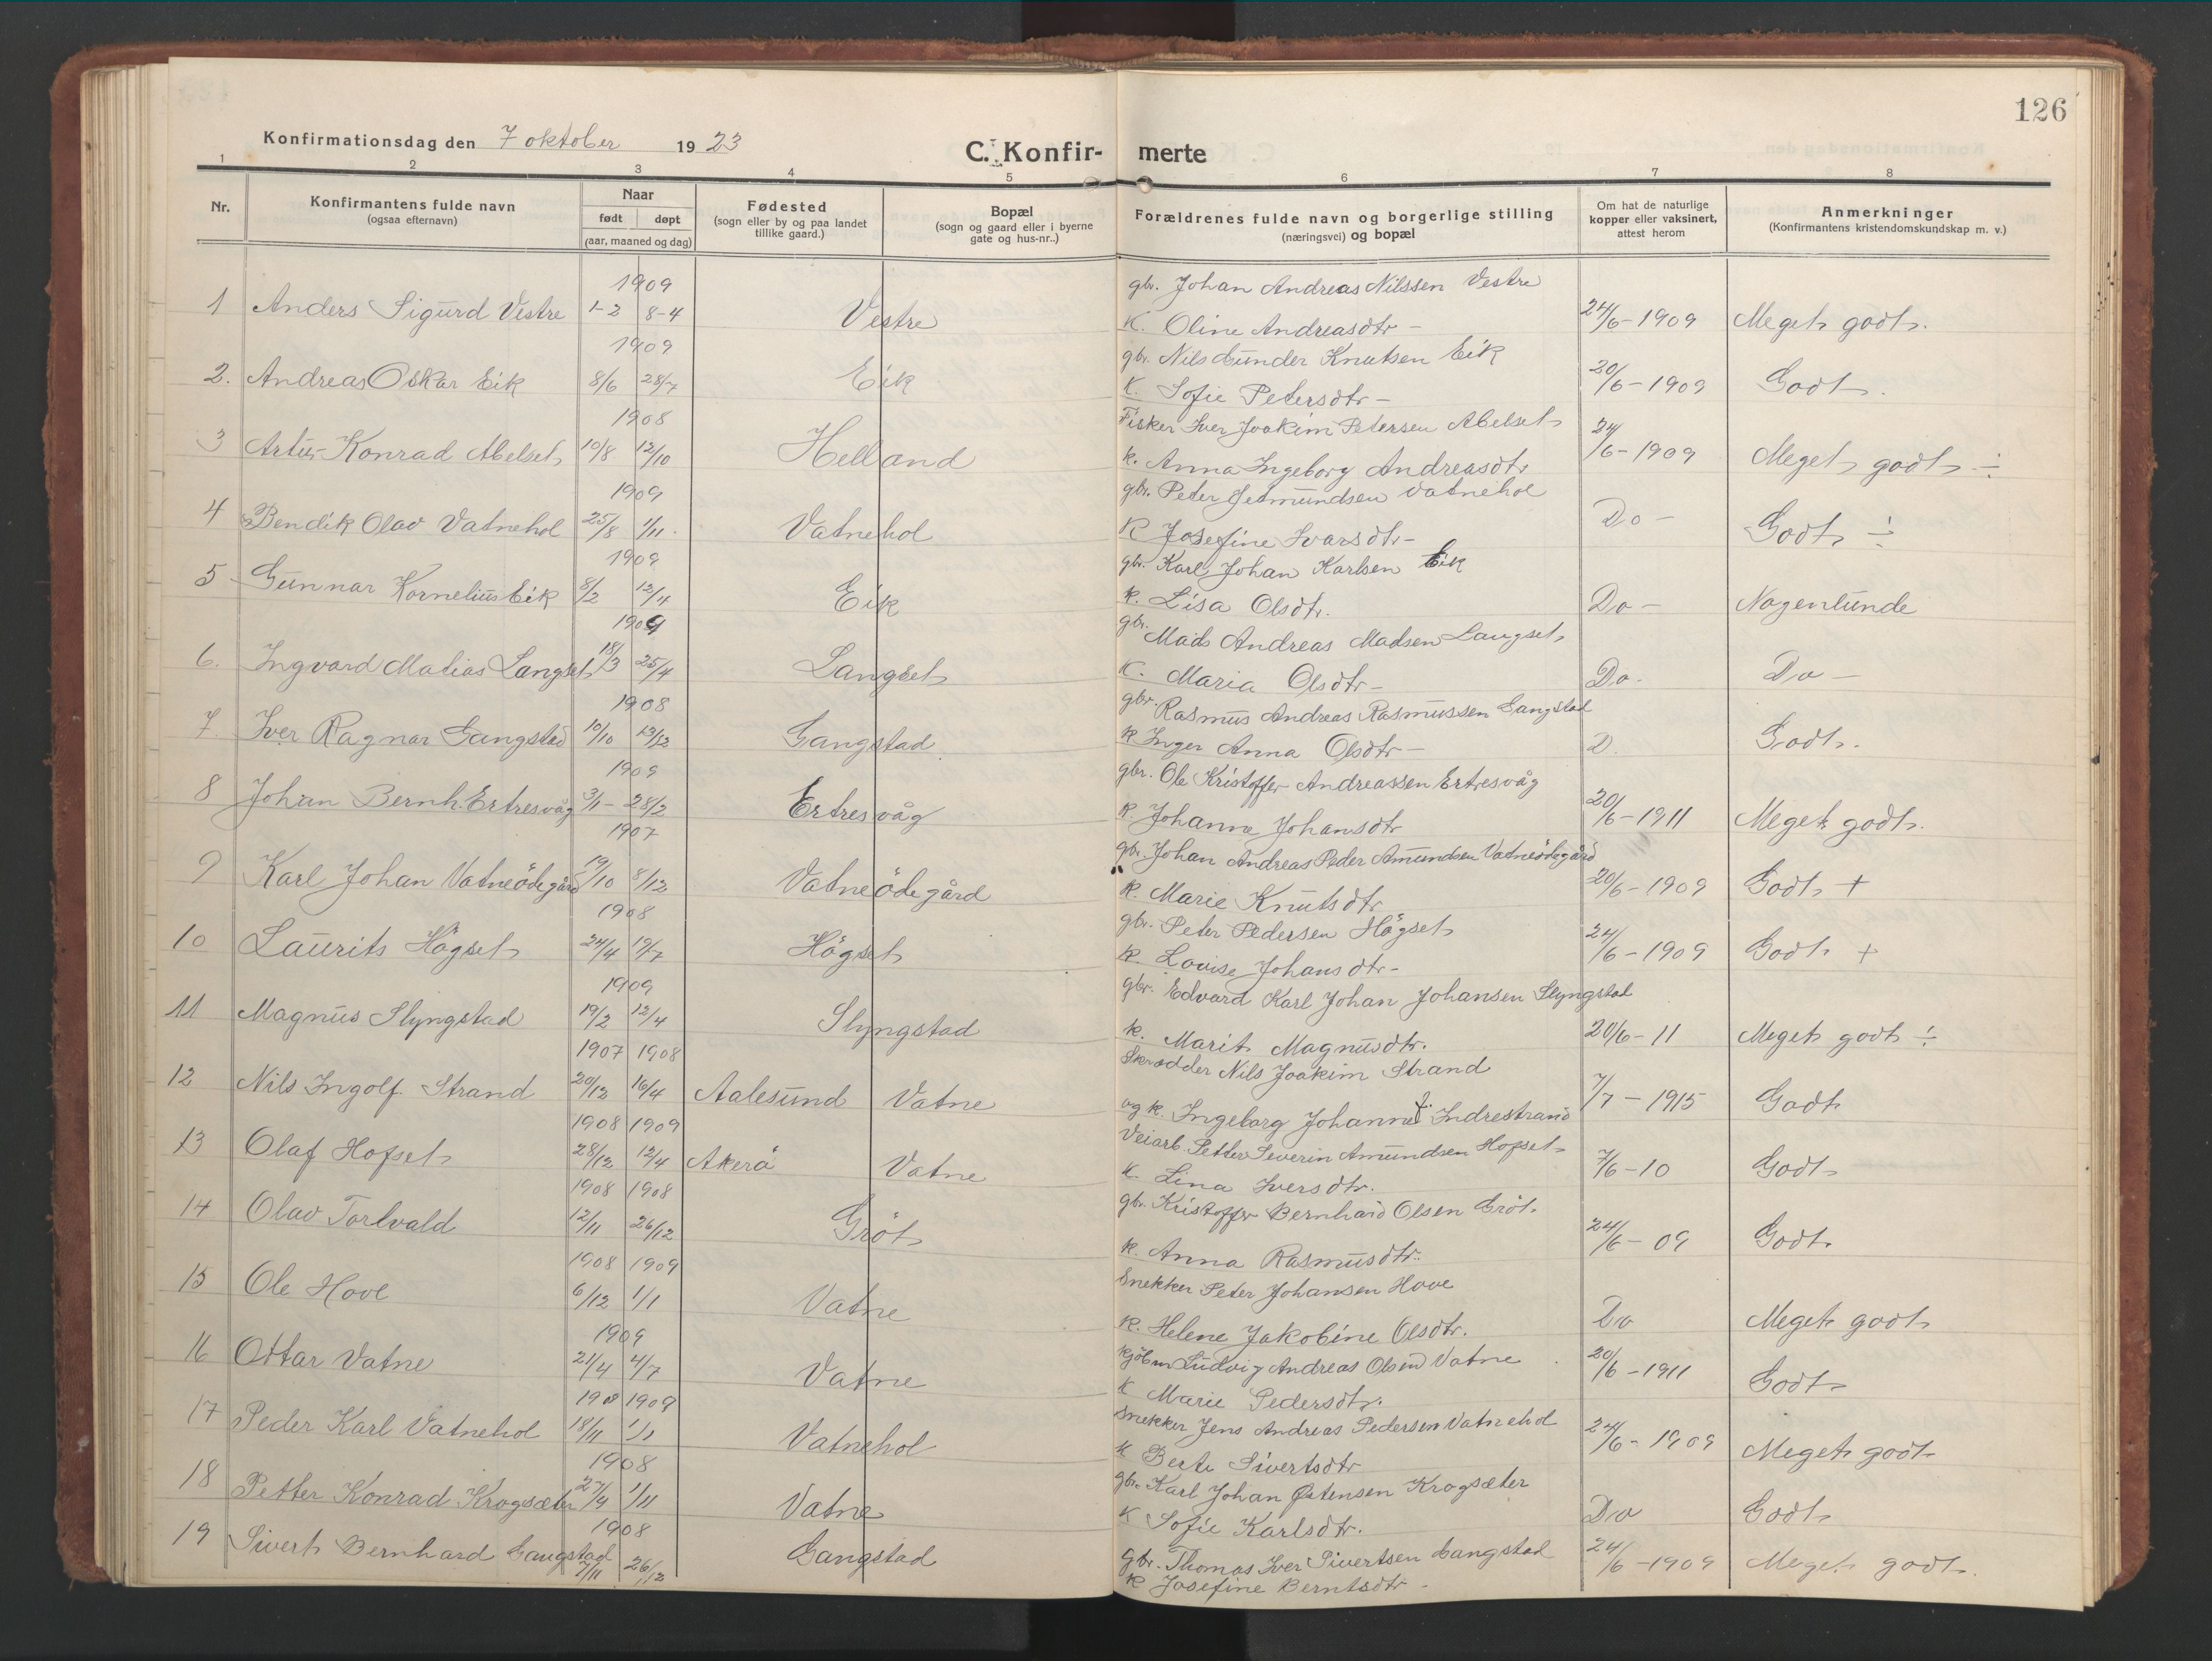 126
Konfirmationsdag den 7 oktober 1923
C. Konfir- merte
1 2 3 4 5 6 7 8
Nr.
Konfirmantens fulde navn
(ogsaa efternavn)
Naar
født døpt
(aar, maaned og dag)
Fødested
(sogn eller by og paa landet
tillike gaard.)
Bopæl
(sogn og gaard eller i byerne
gate og hus-nr..)
Forældrenes fulde navn og borgerlige stilling
(næringsvei) og bopæl
Om hat de naturlige
kopper eller vaksinert,
attest herom
Anmerkninger
(Konfirmantens kristendomskundskap m. v.)
1909 gbr. Johan Andreas Nilssen Vestre
1 Anders Sigurd Vestre 1-2 8-4 Vestre K. Oline Andreasdtr - 24/6-1909 Meget godt.
1909 gbr. Nils Gunder Knutsen Eik
2. Andreas Oskar Eik 8/6 28/7 Eik K. Sofie Petersdtr - 20/6-1909 Godt.
1908 Fisker Iver Joakim Petersen Abelset
3 Artur Konrad Abelset 10/8 12/10 Helland k. Anna Ingeborg Andreasdtr 24/6-1909 Meget godt ÷
1909 gbr. Peter Jetmundsen Vatnehol
4 Bendik Olav Vatnehol 25/8 1/11. Vatnehol K Josefine Ivarsdtr- Do - Godt ÷
1909 gbr. Karl Johan Karlsen Eik
5 Gunnar Kornelius Eik 8/2 12/4 Eik k. Lisa Olsdtr. Do - Nogenlunde
1909 gbr. Mads Andreas Madsen Langset
6. Ingvard Matias Langset 18/3 25/4 Langset K. Maria Olsdtr - Do. Do -
1908 gbr. Rasmus Andreas Rasmussen Gangstad
7. Iver Ragnar Gangstad 10/10 13/12 Gangstad k Inger Anna Olsdtr - D. Godt.
1909 gbr. Ole Kristoffer Andreassen Ertresvåg
8 Johan Bernh. Ertresvåg 3/1 - 28/2 Ertresvåg k. Johanne Johansdtr 20/6-1911 Meget godt.
1907 gbr. Johan Andreas Peder Amundsen Vatneödegård
9 Karl Johan Vatneödegård 19/10 8/12 Vatneödegård k. Marie Knutsdtr 20/6-1909 Godt +
1908 gbr. Peter Pedersen Högset
10 Laurits Högset 24/4 19/7 Högset k. Lovise Johansdtr- 24/6-1909 Godt +
1909 gbr. Edvard Karl Johan Johansen Slyngstad
11 Magnus Slyngstad 19/2 12/4 Slyngstad k. Marit Magnusdtr. 20/6-11 Meget godt ÷
1907 1908 Skrædder Nils Joakim Strand
12 Nils Ingolf Strand 20/12 16/4 Aalesund Vatne og k. Ingeborg Johanne f. Indrestrand 7/7-1915 Godt
1908 1909 Veiarb Petter Severin Amundsen Hofset
13 Olaf Hofset 28/12 12/4 Akerö Vatne k. Lina Iversdtr. 7/6-10 Godt
1908 1908 gbr. Kristoffer Bernhard Olsen Gröt
14 Olav Torlvald 12/11 26/12 Gröt k. Anna Rasmusdtr. 24/6-09 Godt.
1908 1909 Snekker Peter Johansen Hove
15 Ole Hove 6/12 1/1 Vatne k. Helene Jakobine Olsdtr. Do Meget godt
1909 Kjöbm Ludvig Andreas Olsen Vatne
16 Ottar Vatne 21/4 4/7 Vatne k Marie Pedersdtr. 20/6-1911 Godt
1908 1909 Snekker Jens Andreas Pedersen Vatnehol
17 Peder Karl Vatnehol 18/11 1/1 Vatnehol k Berte Sivertsdtr 24/6-1909 Meget godt
1908 gbr. Karl Johan Østensen Krogsæter
18 Petter Konrad Krogsæter 27/9 1/11 Vatne k Sofie Karlsdtr. Do Godt
1908 gbr. Thomas Iver Sivertsen Gangstad
19 Sivert Bernhard Gangstad 7/11 26/12 Gangstad k Josefine Berntsdtr - 24/6-1909 Meget godt.